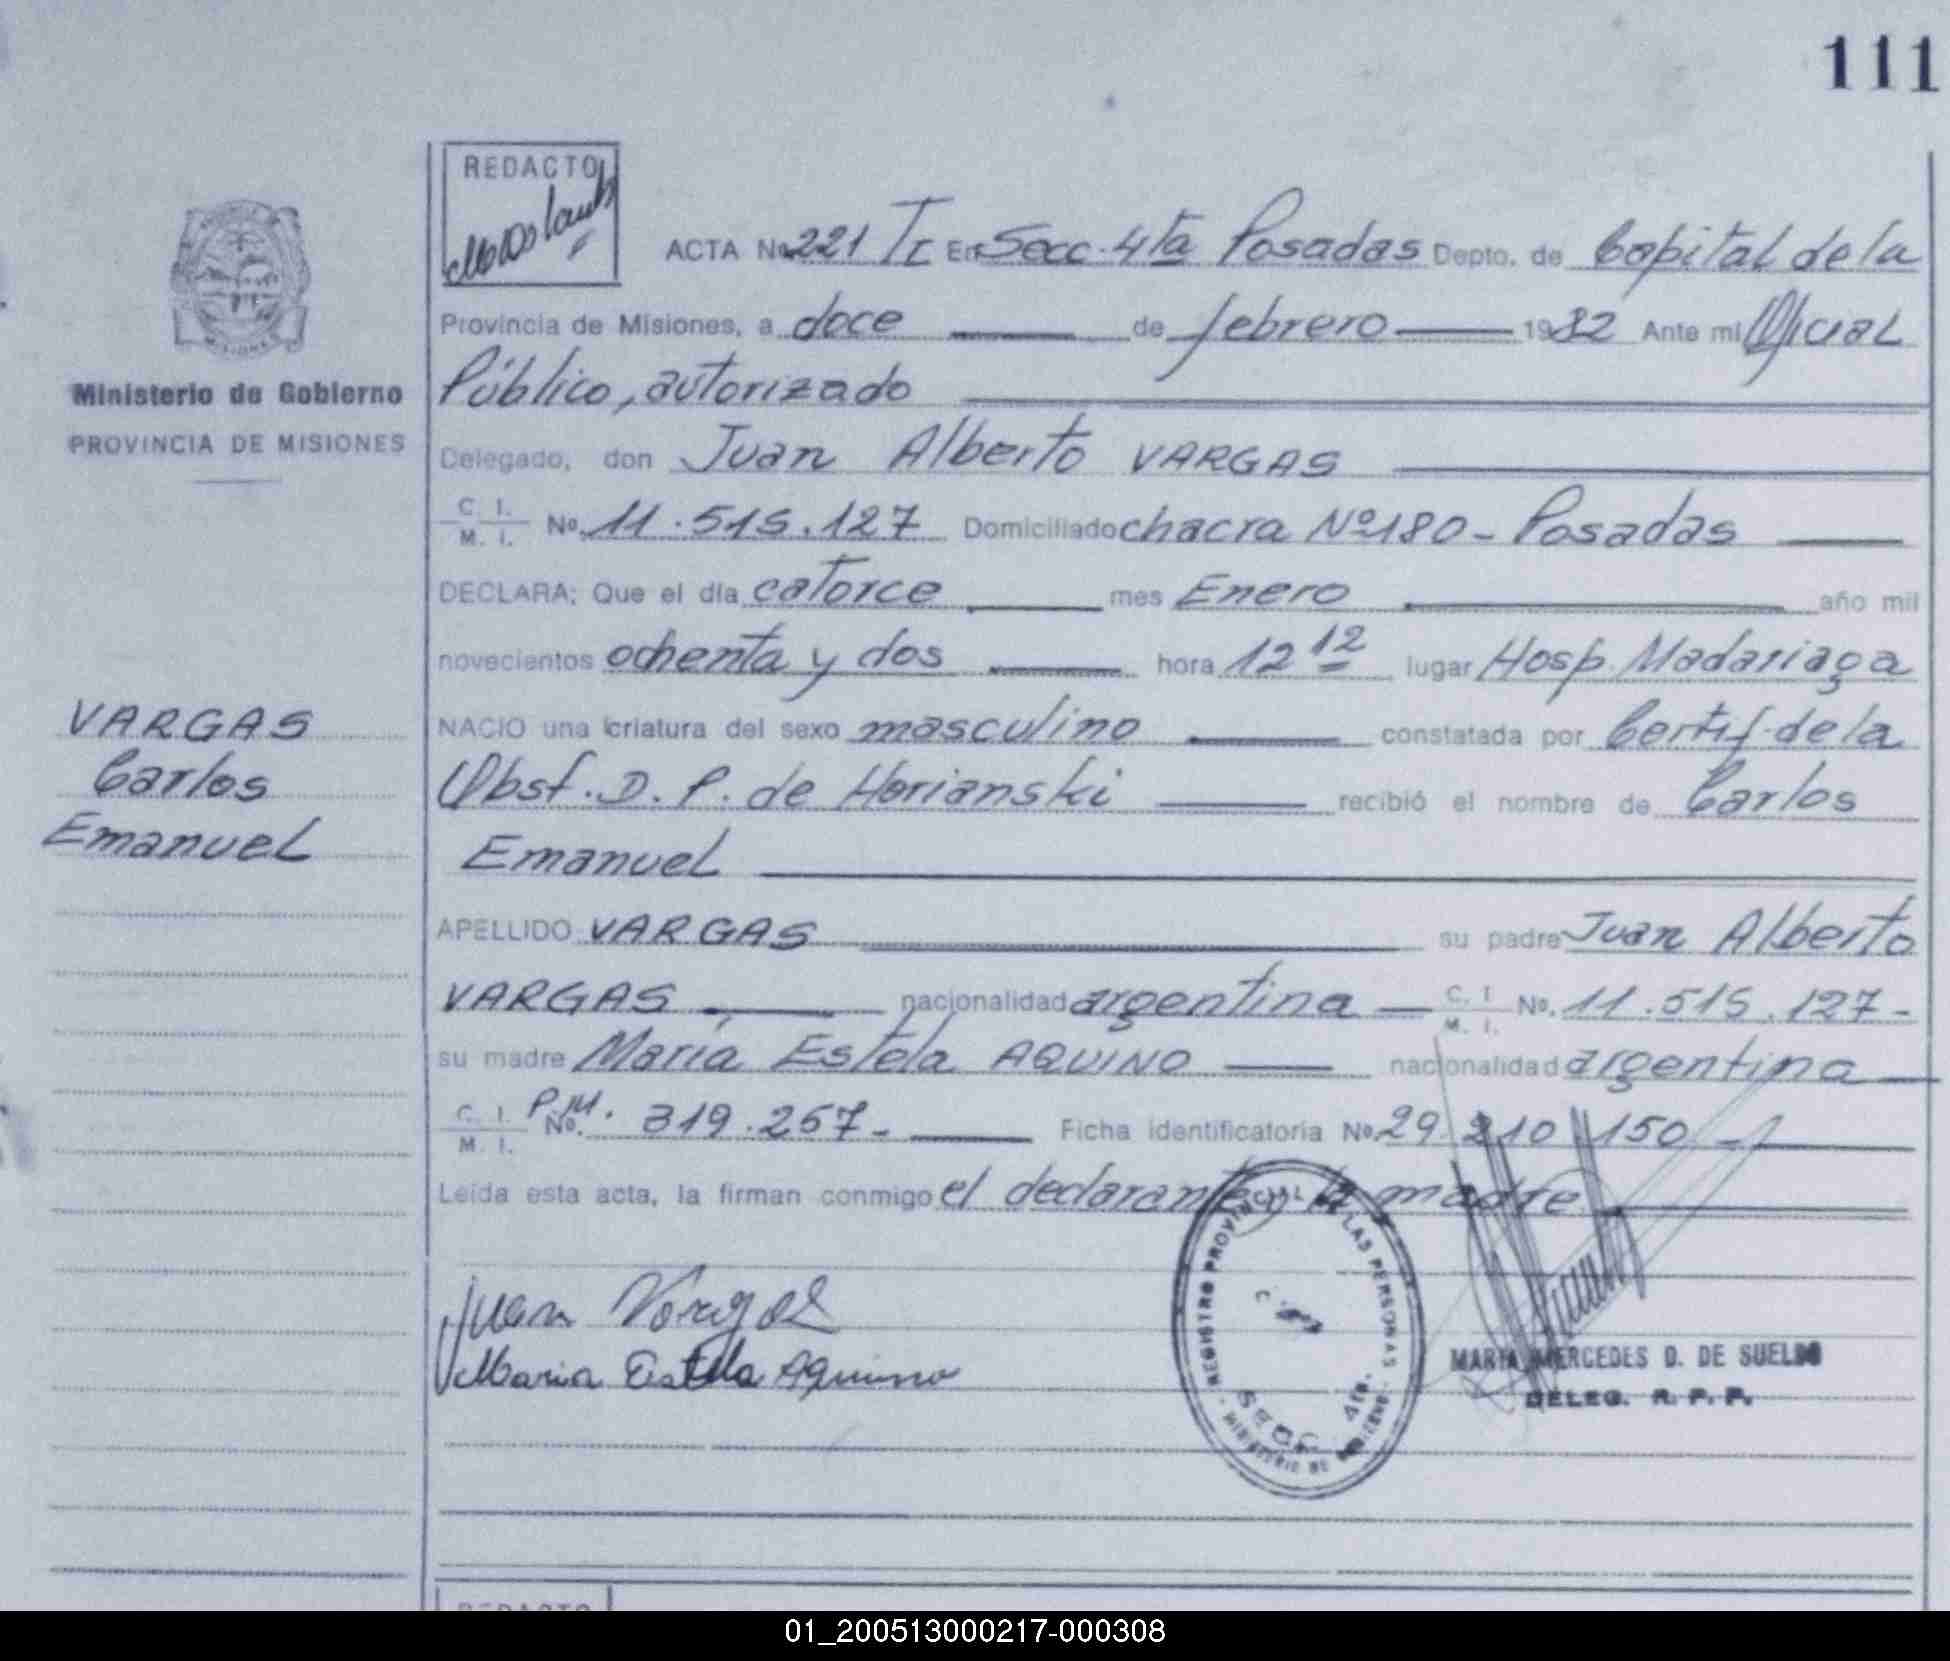 111
REDACTO
ACTA No 221 TI En Secc. 4ta Posadas Depto. de Capital de la
Provincia de Misiones, a doce de febrero 1982 Ante mi Oficial
Público, autorizado
Delegado, don Juan Alberto VARGAS
C. I. M. I. No. 11.515.127 Domiciliado chacra Nº 180 - Posadas
DECLARA: Que el día catorce mes Enero año mil
novecientos ochenta y dos hora 12 12 lugar Hosp. Madariaga
NACIO una criatura del sexo masculino constatada por Certif. de la
Obst. D. P. de Horianski recibió el nombre de Carlos
Emanuel
APELLIDO VARGAS su padre Juan Alberto
VARGAS nacionalidad argentina C. I. M. I. No. 11.515.127-
su madre María Estela AQUINO nacionalidad argentina
C. I. M. I. P.M. No. 319.257- Ficha identificatoria No 29.210.150 -
Leída esta acta, la firman conmigo el declarante y la madre
MISIONES
Ministerio de Gobierno
PROVINCIA DE MISIONES
VARGAS
Carlos
Emanuel
Juan Vargas
Maria Estela Aquino
REGISTRO PROVINCIAL DE LAS PERSONAS
SECC. 4ta.
MINISTERIO DE GOBIERNO
MARIA MERCEDES D. DE SUELDO
DELEG. R. P. P.
REDACTO
01_200513000217-000308